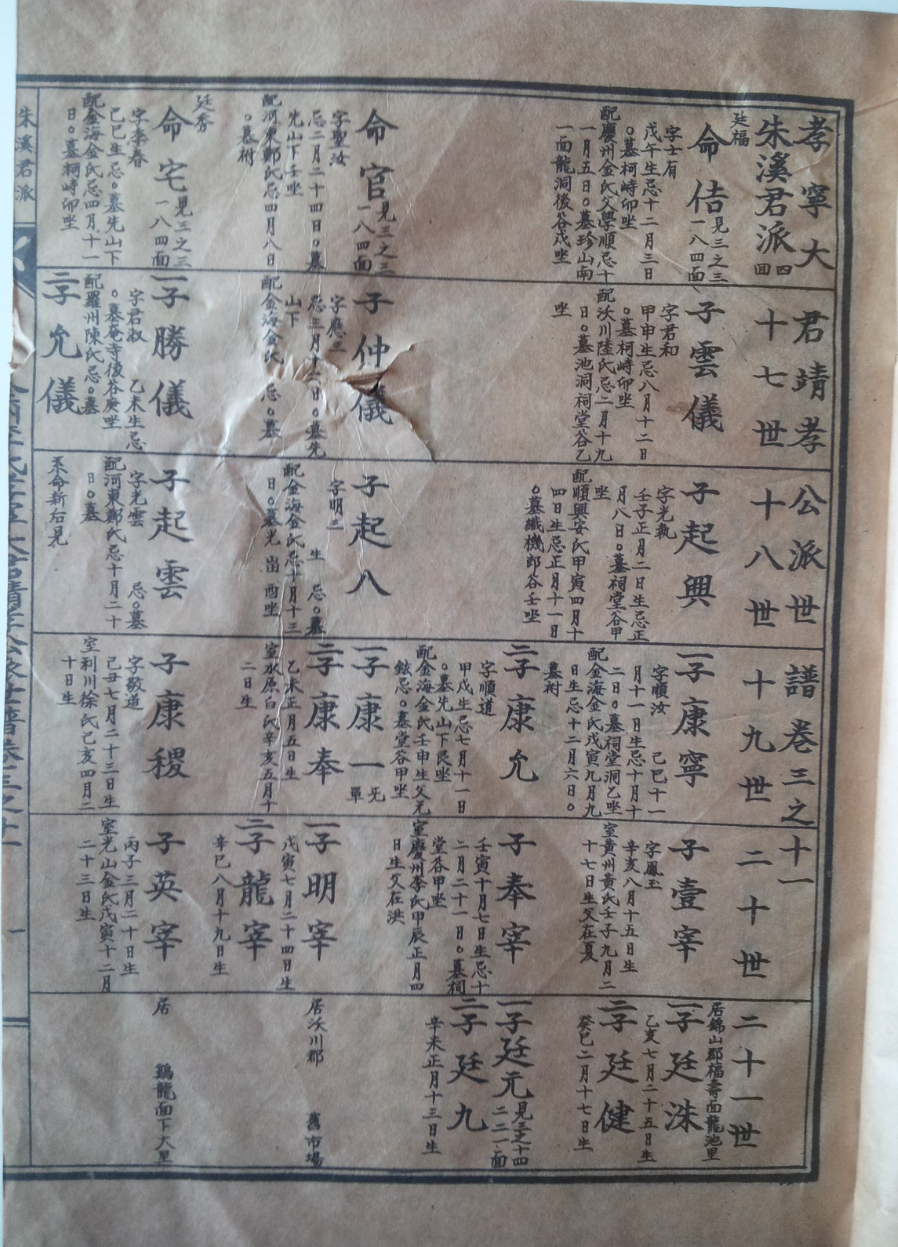 孝寧大君靖孝公派世譜卷三之十一
朱溪君派
十七世
十八世
十九世
二十世
二十一世
廷福
命佶
見三之三
一八四面
字士有
戊午生忌十二月三日
○墓柯峙卯坐
配慶州金氏父學順忌十
一月五日○墓珍山南
一面龍洞後谷戌坐
命官
見三之三
一八四面
字聖汝
忌二月二十四日○墓
先山下壬坐
配河東鄭氏忌四月八日
○墓祔
廷秀
命宅
見三之三
一八四面
字季春
己巳生忌○墓先山下
配金海金氏忌四月十一
日○墓柯峙卯坐
子雲儀
字君和
甲申生忌八月十二日
○墓柯峙卯坐
配沃川陸氏忌二月十九
日○墓池洞祠堂谷乙
坐
子仲儀
字應三
忌三月十六日○墓先
山下
配金海金氏 忌○墓
一子勝儀
字君叔 乙未生忌
○墓奄寺後谷庚坐
配羅州陳氏忌○墓
二子允儀
子起興
字光執
壬子正月二日生忌正
月八日○墓祠堂谷甲
坐
配順興安氏甲寅四月十
四日生忌正月十一日
○墓纖機郎谷壬坐
子起八
字明三 生 忌○墓
配金海金氏忌十月十三
日○墓光 峀 酉坐
子起雲
字光雲 忌○墓
配河東鄭氏忌十月二十
日○墓
系命新右見
一子康寧
字順汝 己巳十一
月十一日生忌十月十
二日○墓祠堂洞乙坐
配金海金氏戊寅九月九
日生忌十二月六日○
墓祔
二子康允
字順道
甲戌生忌七月十一日
○墓先山下艮坐
配金海金氏壬申生父元
鉉忌○墓堂谷甲坐
一子康一
無單
二子康奉
乙未正月五日生
室水原白氏辛亥五月十
二日生
子康稷
字敬道
己丑七月二十三日生
室利川徐氏乙亥四月二
十日生
子壹宰
字鳳玉
辛亥八月十五日生
室黃州黃氏壬子九月二
十七日生父在夏
子奉宰
壬寅十月七日生忌十
二月二十一日○墓祠
堂谷甲坐
室慶州李氏甲辰正月四
日生父在洪
一子明宰
戊寅七月二十四日生
二子龍宰
辛巳八月十九日生
子英宰
丙子三月二十日生
室光山金氏戊寅十二月
二十三日生
居錦山郡福壽面龍池里
一子廷洙
乙亥七月二十五日生
二子廷健
癸巳二月十七日生
一子廷元
見三之十四
二二一面
二子廷九
辛未正月十三日生
居沃川郡 舊市場
居 鷄龍面下大里
朱溪君派